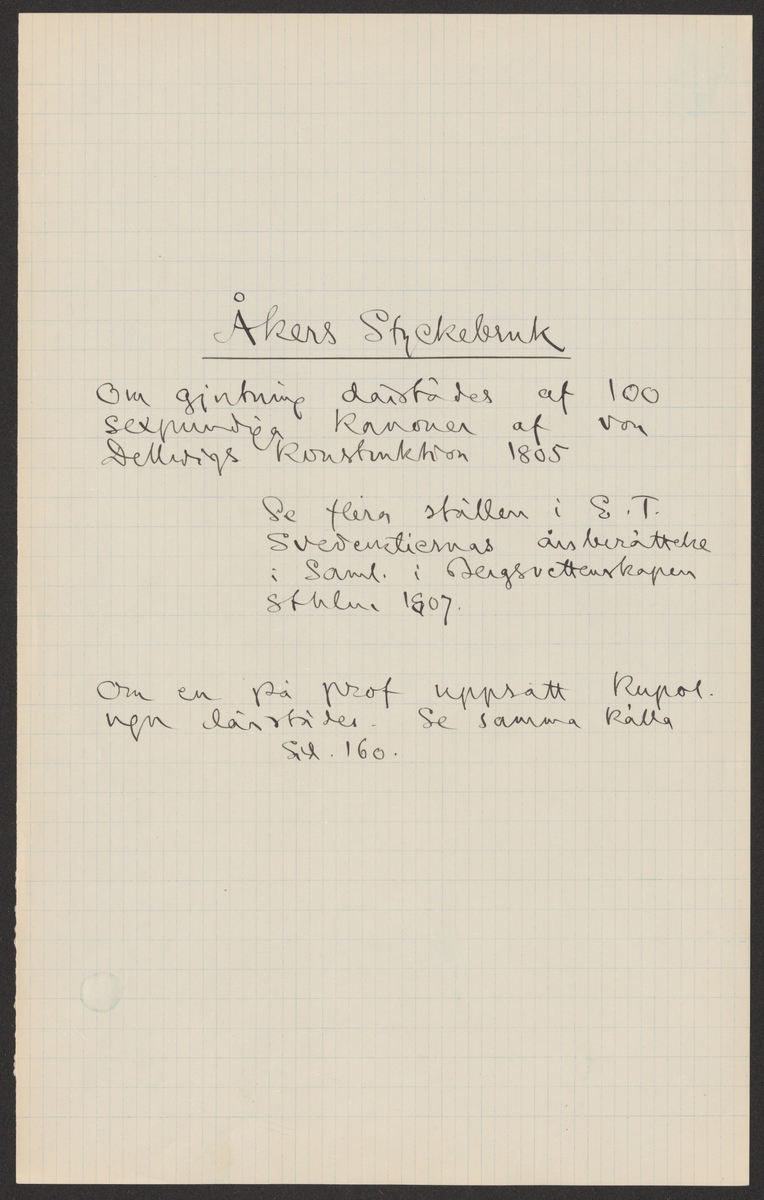 Åkers Styckebruk
Om gjutning därstädes af 100
sexpundiga kanoner af von
Dellwigs konstruktion 1805
Se flera ställen i E. T.
Svedenstiernas årsberättelse
i Saml. i Bergsvettenskapen
Sthlm 1807.
Om en på prof uppsatt kupol.
ugn därstädes. Se samma källa
Sid. 160.